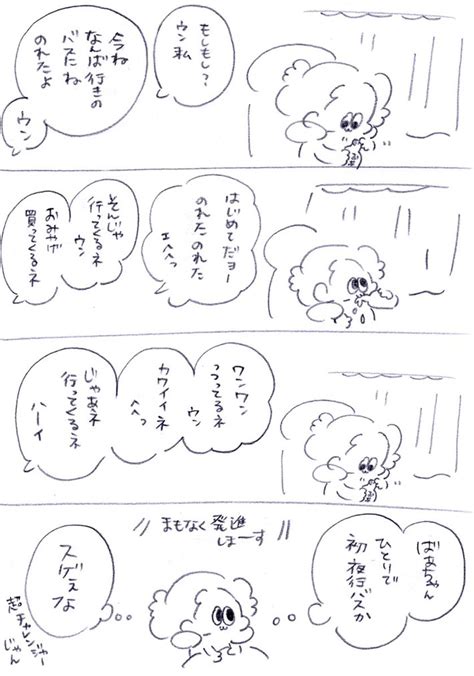 もしもし？
ウン私
今ね
なんば行きの
バスにね
のれたよ
ウン
はじめてだヨー
のれたのれた
エヘヘっ
そんじゃ
行ってくるネ
ウン
おみやげ
買ってくるネ
ワンワン
っつってるネ
ウン
カワイイネ
へへっ
じゃあネ
行ってくるネ
ハーイ
まもなく発進
しまーす
ばあちゃん
ひとりで
初夜行バスか
スゲぇな
超チャレンジャー
じゃん